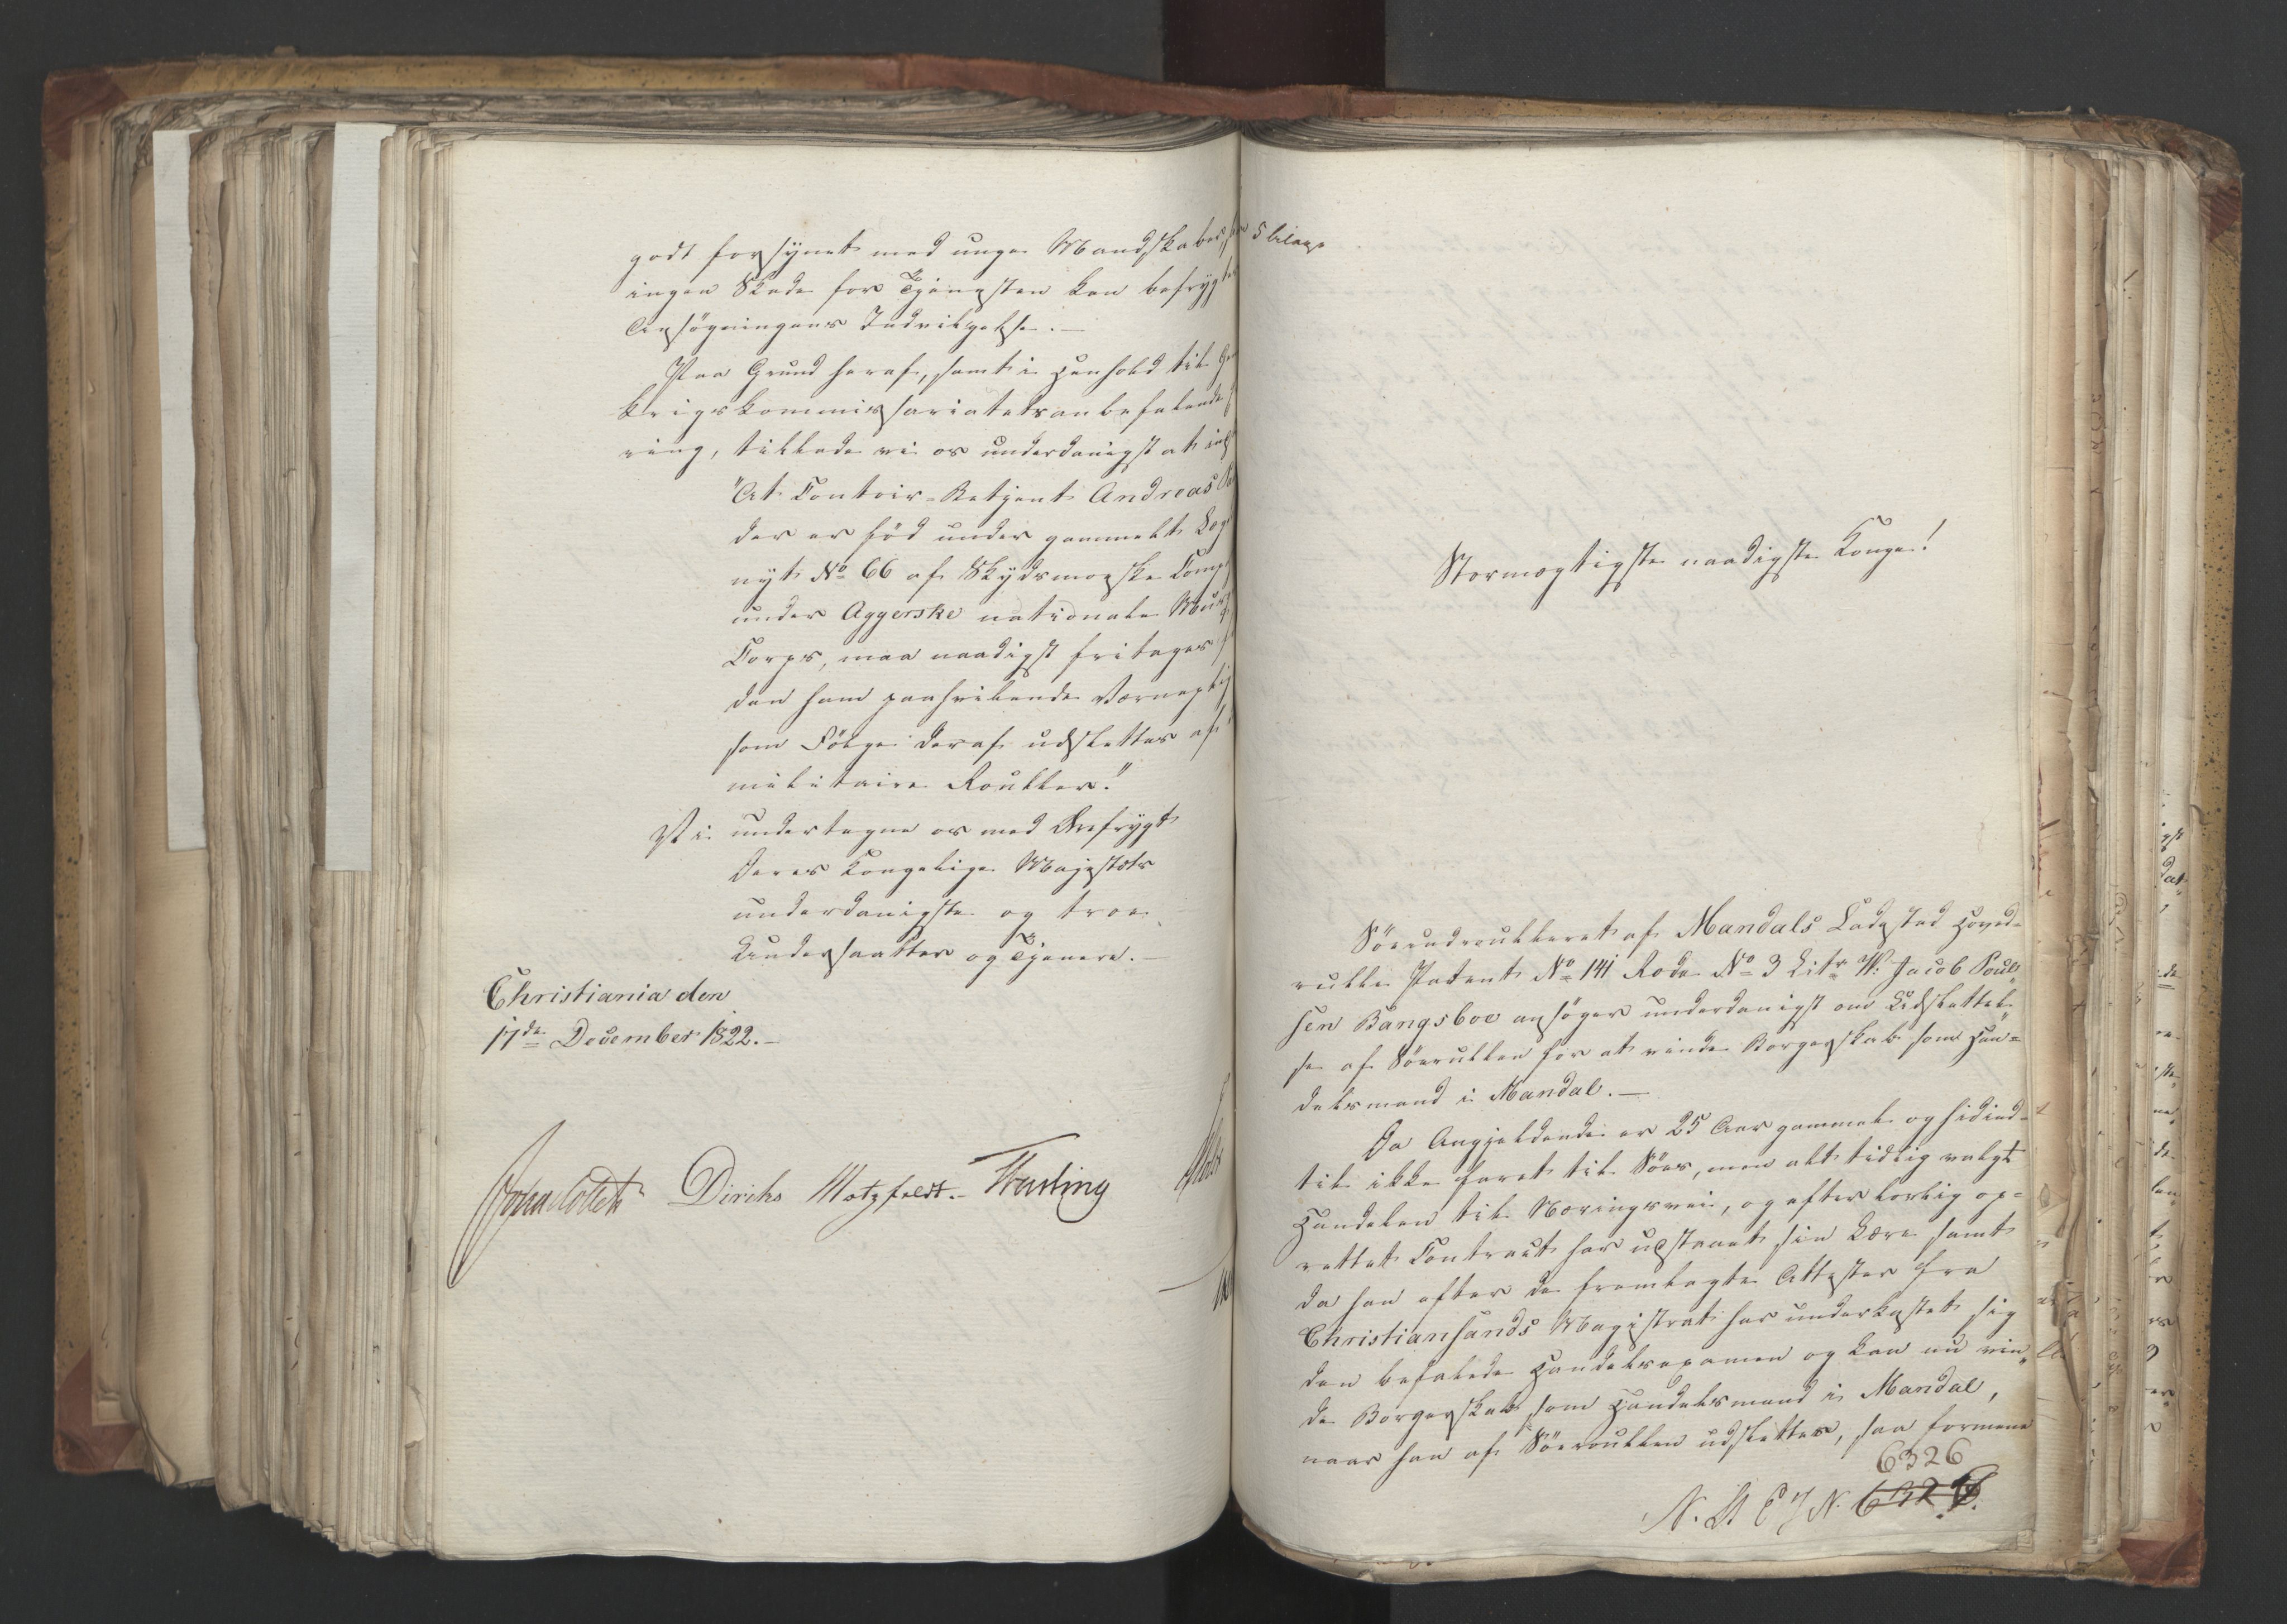 godt forsynet med unge Mandskaber,
ingen Skade for Tjenesten kan befrygt
Ansøgningens Indvilgelse.—
Paa Grund heraf, samt i Henhold til
krigskommissariatets anbefalende
ring, tillade vi os underdanigst at ind
"At Contoir-Betjent Andreas
der er fød under gammelt Læg
nyt No 66 af Skydsmoeske Comp
under Aggerske nationale Mus
Corps, maa naadigst fritages
den ham paahvilende Værneplig
som Følge deraf udslettes af
militaire Rouller."
Vi undertegne os med Ærefrygt
Deres Kongelige Majestæts
underdanigste og troe
Undersaatter og Tjenere.—
Christiania den
17de December 1822.—
Jonas Collett Diriks Motzfeldt. Treschow
5 bilage
Stormægtigste naadigste Konge!
Søeindroulleret af Mandals Ladested Hoved-
rulle Patent No 141 Rode No 3 Litr W. Jacob Poul-
sen Bangsboe ansøger underdanigst om Udslettel-
se af Søerullen for at vinde Borgerskab som Han-
delsmand i Mandal.—
Da Angjeldende er 25 Aar gammel og hidind-
til ikke faret til Søes, men alt tidlig valgt
Handelen til Næringsvei, og efter lovlig op-
rettet Contract har udstaaet sin Lære samt
da han efter de fremlagte Attester fra
Christiansands Magistrat har underkastet sig
den befalede Handelsexamen og kan nu vin-
de Borgerskab som Handelsmand i Mandal,
naar han af Søeroullen udslettes, saa formene
6326